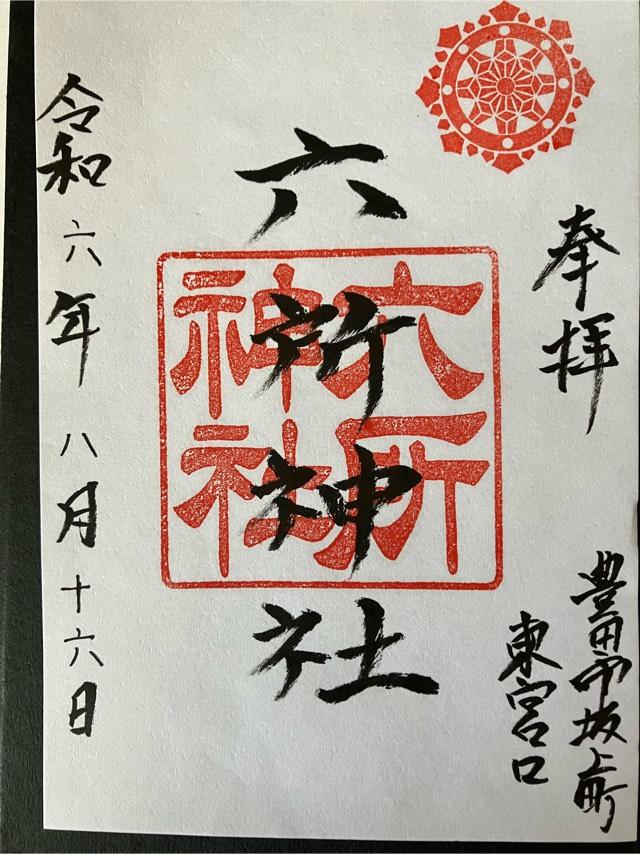 奉拝
豊田市坂上町
東宮口
六所神社
六所
神社
令和六年八月十六日